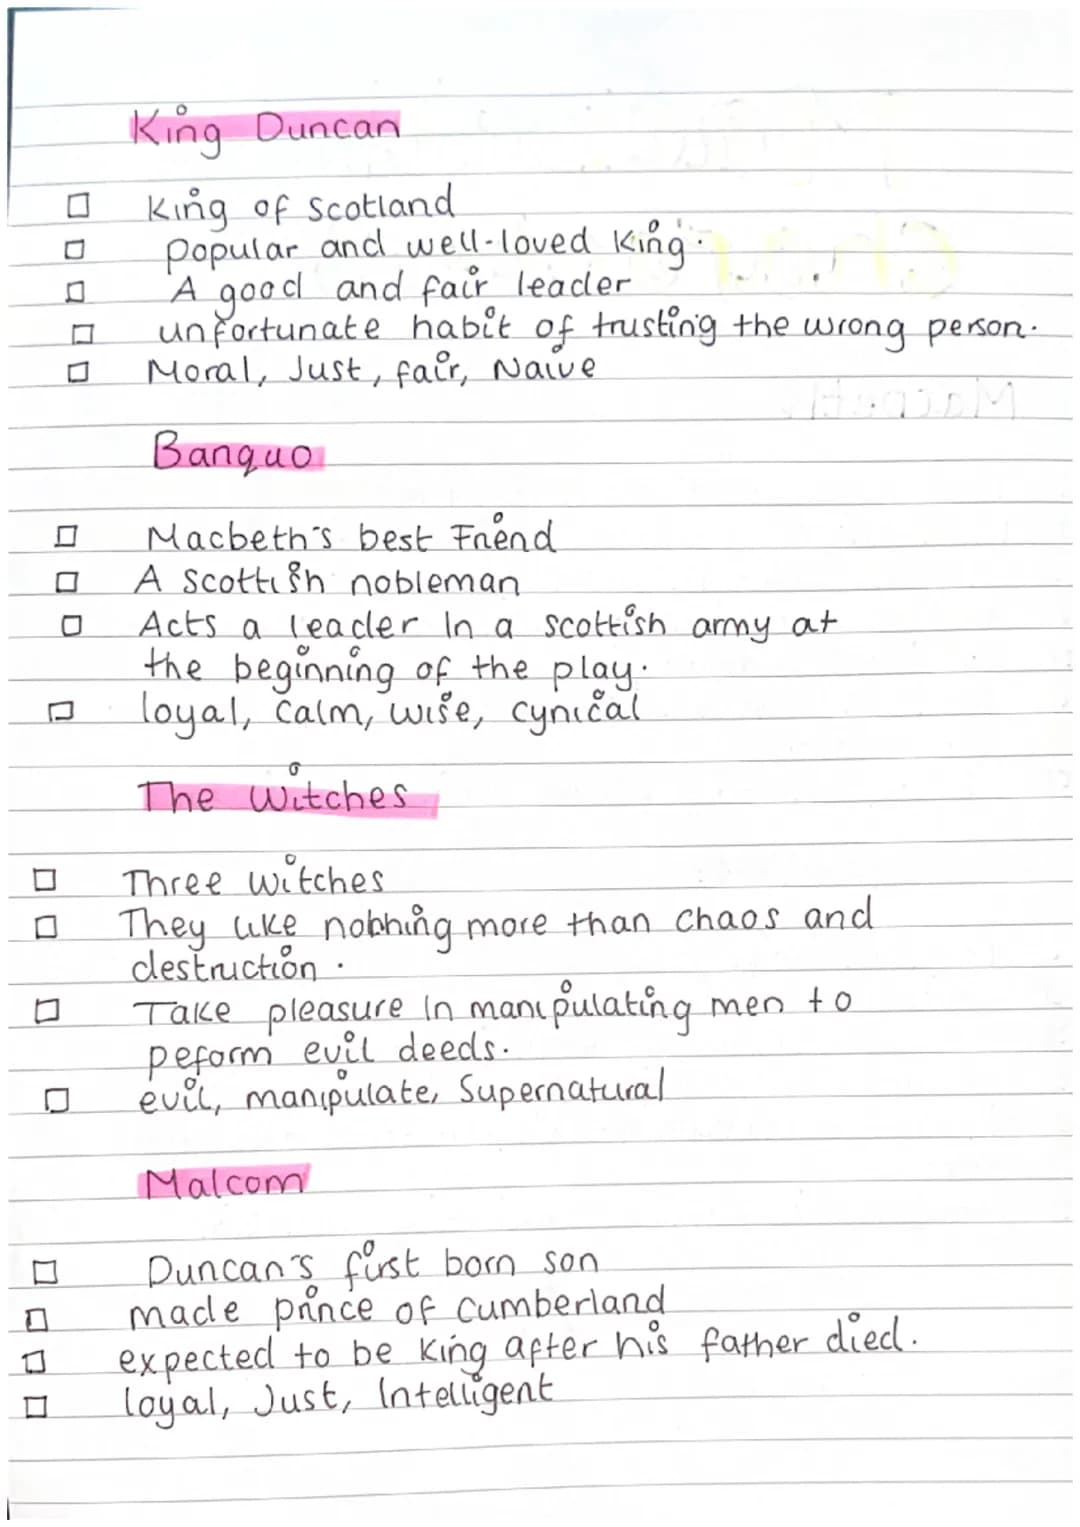 King Duncan
King of Scotland
Popular and well-loved King.
A good and fair leader
unfortunate habit of trusting the wrong person.
Moral, Just, fair, Naive
Banquo
Macbeth's best Friend
A Scottish nobleman
Acts a leader In a scottish army at
the beginning of the play.
loyal, calm, wise, cynical
The Witches
Three witches
They like nothing more than chaos and
destruction.
Take pleasure In manipulating men to
peform evil deeds.
evil, manipulate, Supernatural
Malcom
Duncan's first born son
made prince of Cumberland
expected to be King after his father died.
loyal, Just, Intelligent